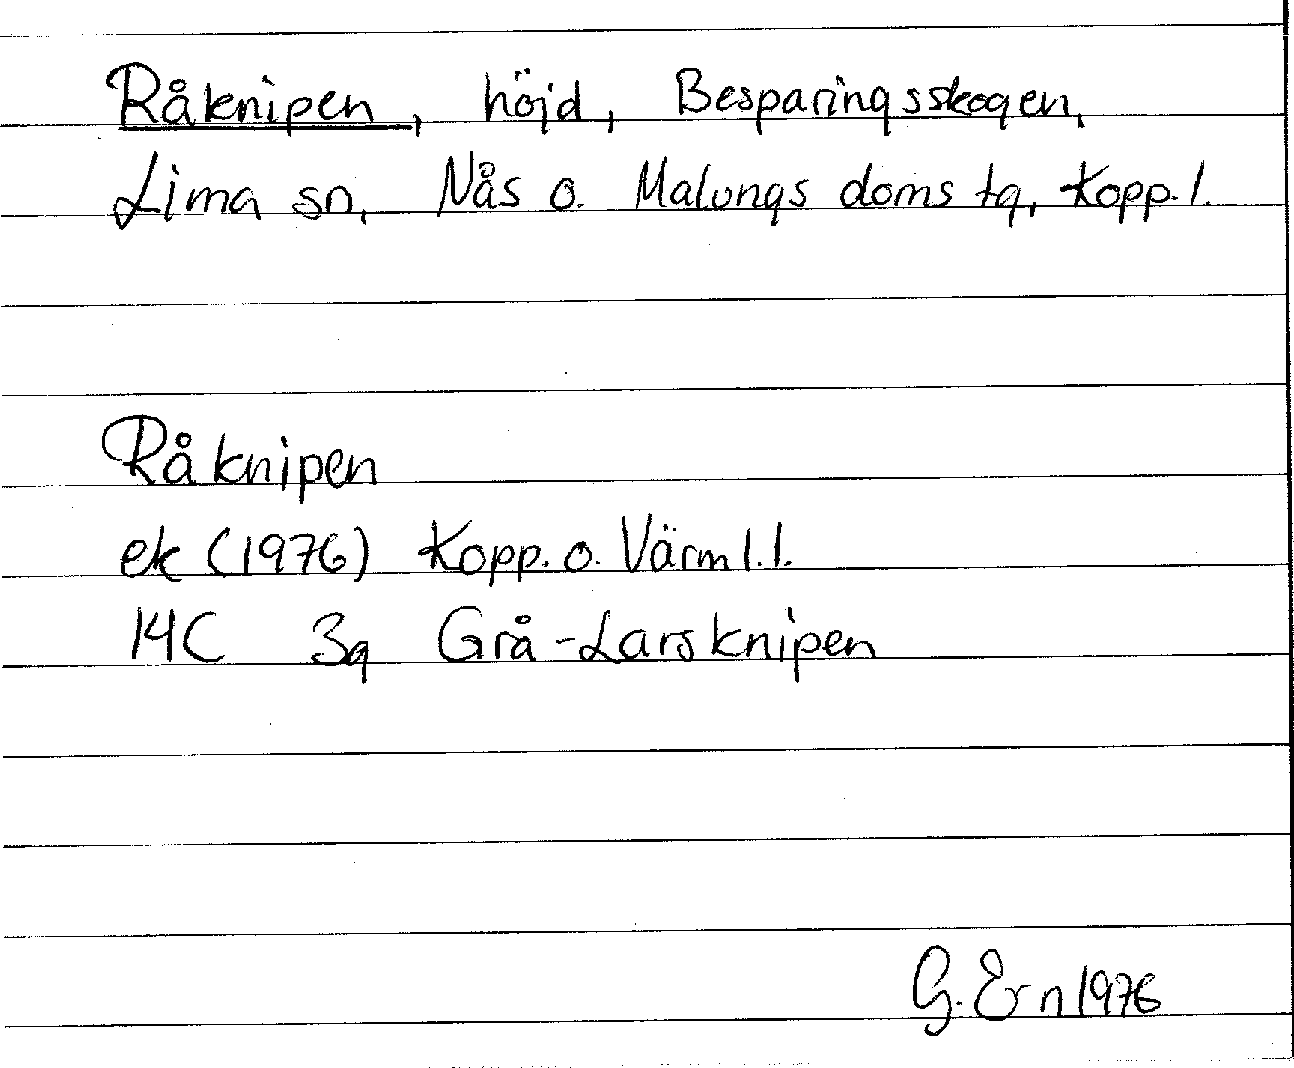 Råknipen, höjd, Besparingsskogen,
Lima sn, Nås o. Malungs doms tg, Kopp. l.
Råknipen
ek (1976) Kopp. o. Värml. l.
14C 3g Grå-Larsknipen
G. Ern 1976